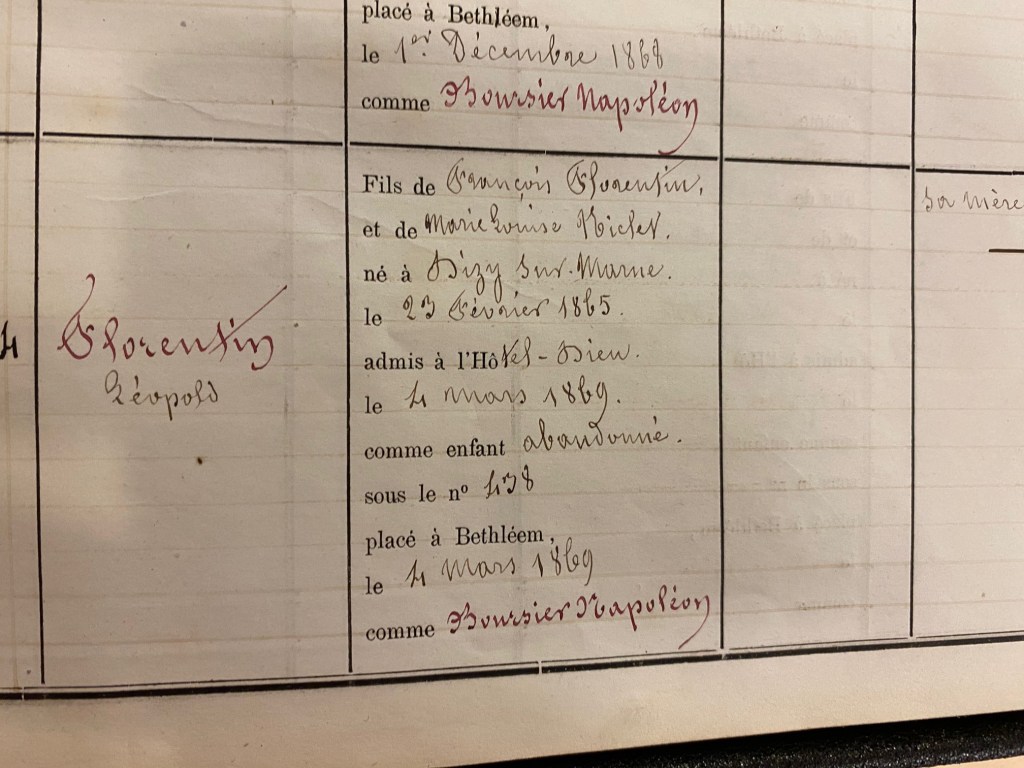 placé à Bethléem,
le 1er Décembre 1868
comme Boursier Napoléon
4
Florentin
Léopold
Fils de François Florentin,
et de Marie Louise Richet.
né à Dizy sur-Marne.
le 23 Février 1865.
admis à l'Hôtel-Dieu.
le 4 mars 1869.
comme enfant abandonné.
sous le nº 438
placé à Bethléem,
le 4 mars 1869
comme Boursier Napoléon
Sa mère